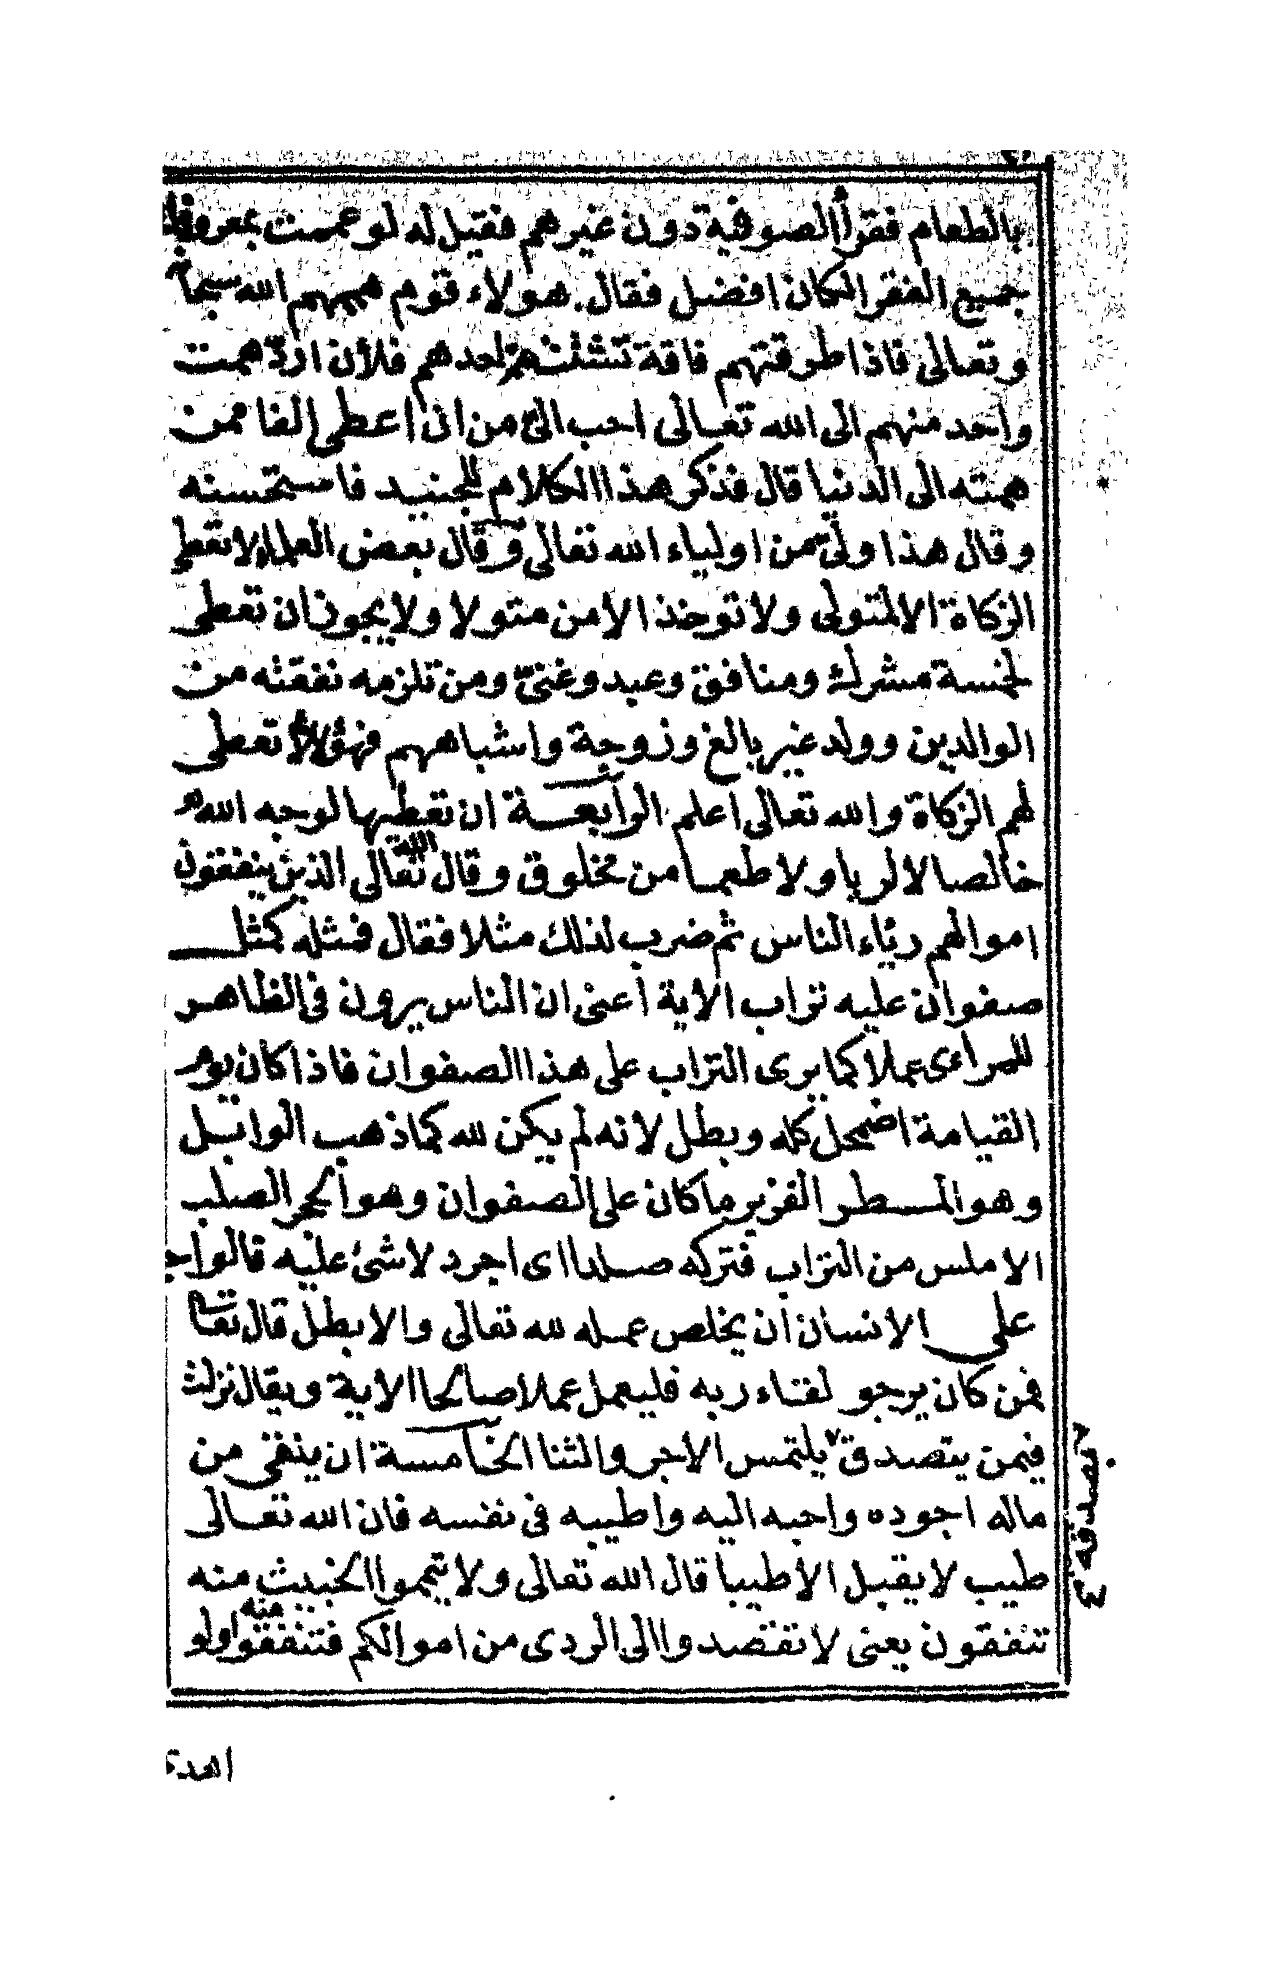 بالطعام فقرأ الصوفية دون غيرهم فقيل له لو عممت بمعروفك
جميع الفقرا لكان افضل فقال هولاء قوم هممهم الله سبحانه
وتعالى فاذا طرقتهم فاقة تشتت هم احدهم فلأن ارد همت
واحد منهم الى الله تعالى احب الى من ان اعطى الفا ممن
همته الى الدنيا قال فذكر هذا الكلام للجنيد فاستحسنه
وقال هذا ولى من اولياء الله تعالى وقال بعض العلماء لا تعطى
الزكاة الا لمتولى ولا توخذ الا من متولا ولا يجوز ان تعطى
لخمسة مشرك ومنافق وعبد وغنى ومن تلزمه نفقته من
الوالدين وولد غير بالغ وزوجة واشباههم فهؤلاء لا تعطى
لهم الزكاة والله تعالى اعلم الرابعة ان تعطيها لوجه الله هو
خالصا لا لريا ولا طعما من مخلوق وقال الله تعالى الذين ينفقون
اموالهم رياء الناس ثم ضرب لذلك مثلا فقال فمثله كمثل
صفوان عليه تراب الاية اعنى ان الناس يرون فى الظاهر
للمراءى عملا كما يرى التراب على هذا الصفوان فاذا كان يوم
القيامة اضمحل كله وبطل لانه لم يكن لله كما ذهب الوابل
وهو المطر الغزير ما كان على الصفوان وهو الحجر الصلب
الاملس من التراب فتركه صلدا اى اجرد لا شئ عليه قالوا جب
على الانسان ان يخلص عمله لله تعالى والا بطل قال تعالى
فمن كان يرجو لقاء ربه فليعمل عملا صالحا الاية ويقال نزلت
فيمن يتصدق يلتمس الاجر والثنا الخامسة ان ينفق من
ماله اجوده واحبه اليه واطيبه فى نفسه فان الله تعالى
طيب لا يقبل الا طيبا قال الله تعالى ولا تيمموا الخبيث منه
تنفقون يعنى لا تقصدوا الى الردى من اموالكم فتنفقوا منه ولو
اهدى
بصدقه